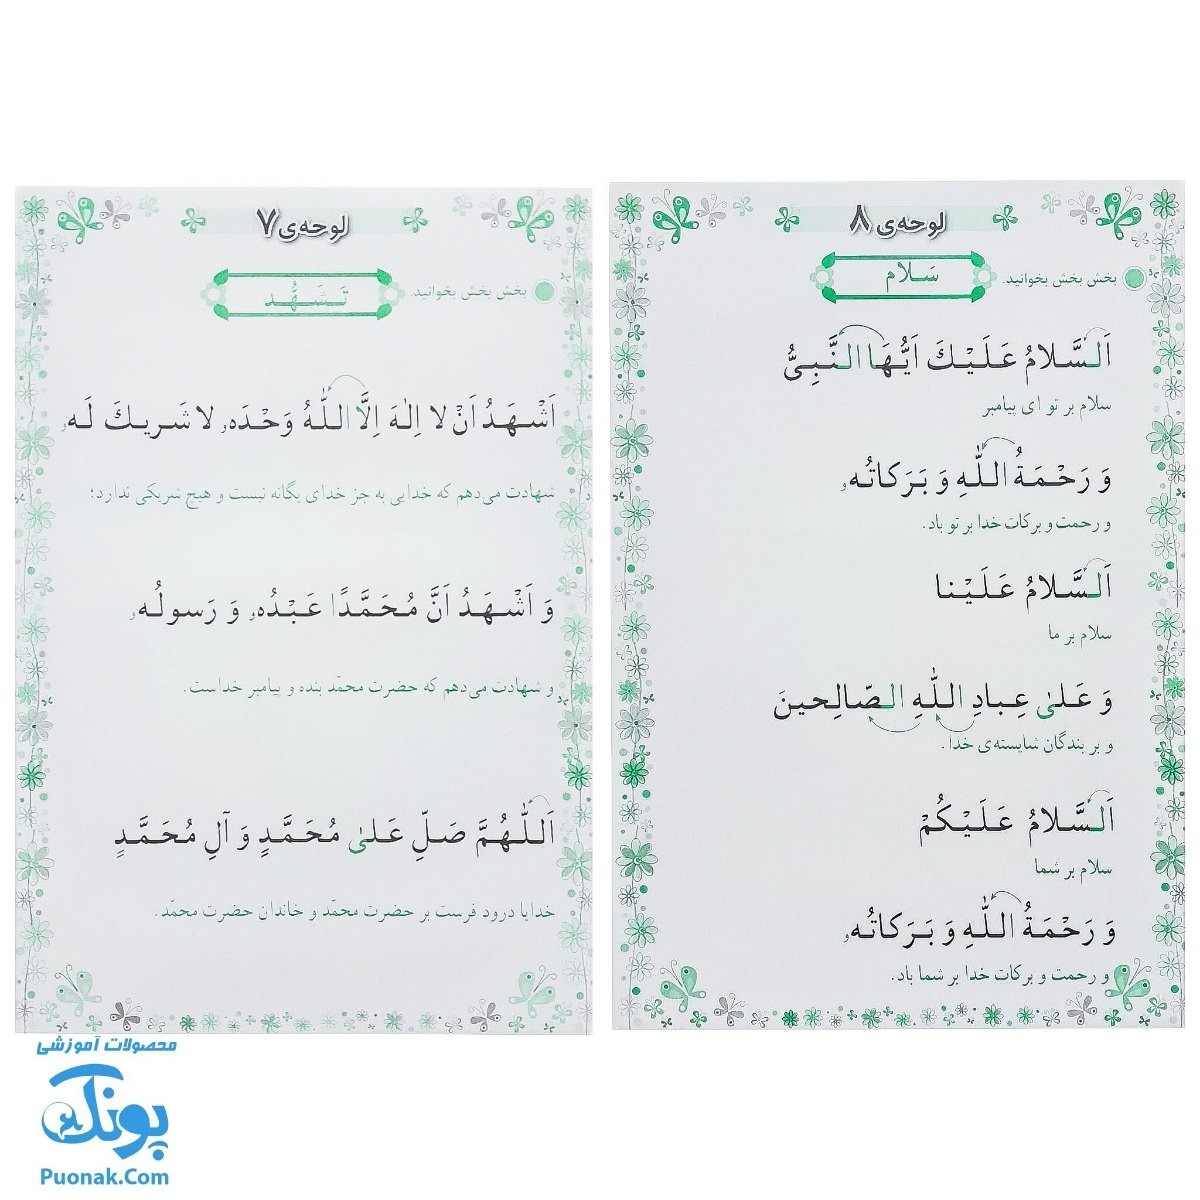 لوحه‌ی ۸
بخش بخش بخوانید.
سَـلام
اَلـسَّـلامُ عَـلَـیْـكَ اَیُّـهَـا الـنَّـبِـیُّ
سلام بر تو ای پیامبر
وَ رَحْـمَـةُ الـلّٰـهِ وَ بَـرَكاتُـه و
و رحمت و برکات خدا بر تو باد.
اَلـسَّـلامُ عَـلَـیْـنا
سلام بر ما
وَ عَـلـیٰ عِـبادِ الـلّٰـهِ الـصّـالِـحـیـنَ
و بر بندگان شایسته‌ی خدا.
اَلـسَّـلامُ عَـلَـیْـكُـمْ
سلام بر شما
وَ رَحْـمَـةُ الـلّٰـهِ وَ بَـرَكاتُـه و
و رحمت و برکات خدا بر شما باد.
لوحه‌ی ۷
بخش بخش بخوانید.
تَـشَـهُّـد
اَشْـهَـدُ اَنْ لا اِلٰـهَ اِلَّا الـلّٰـهُ وَحْـدَه و لا شَـریـكَ لَـه و
شهادت می‌دهم که خدایی به جز خدای یگانه نیست و هیچ شریکی ندارد؛
وَ اَشْـهَـدُ اَنَّ مُـحَـمَّـدًا عَـبْـدُه و وَ رَسولُـه و
و شهادت می‌دهم که حضرت محمّد بنده و پیامبر خداست.
اَلـلّٰـهُـمَّ صَـلِّ عَـلـیٰ مُـحَـمَّـدٍ وَ آلِ مُـحَـمَّـدٍ
خدایا درود فرست بر حضرت محمّد و خاندان حضرت محمّد.
محصولات آموزشی
پونک
Puonak.Com